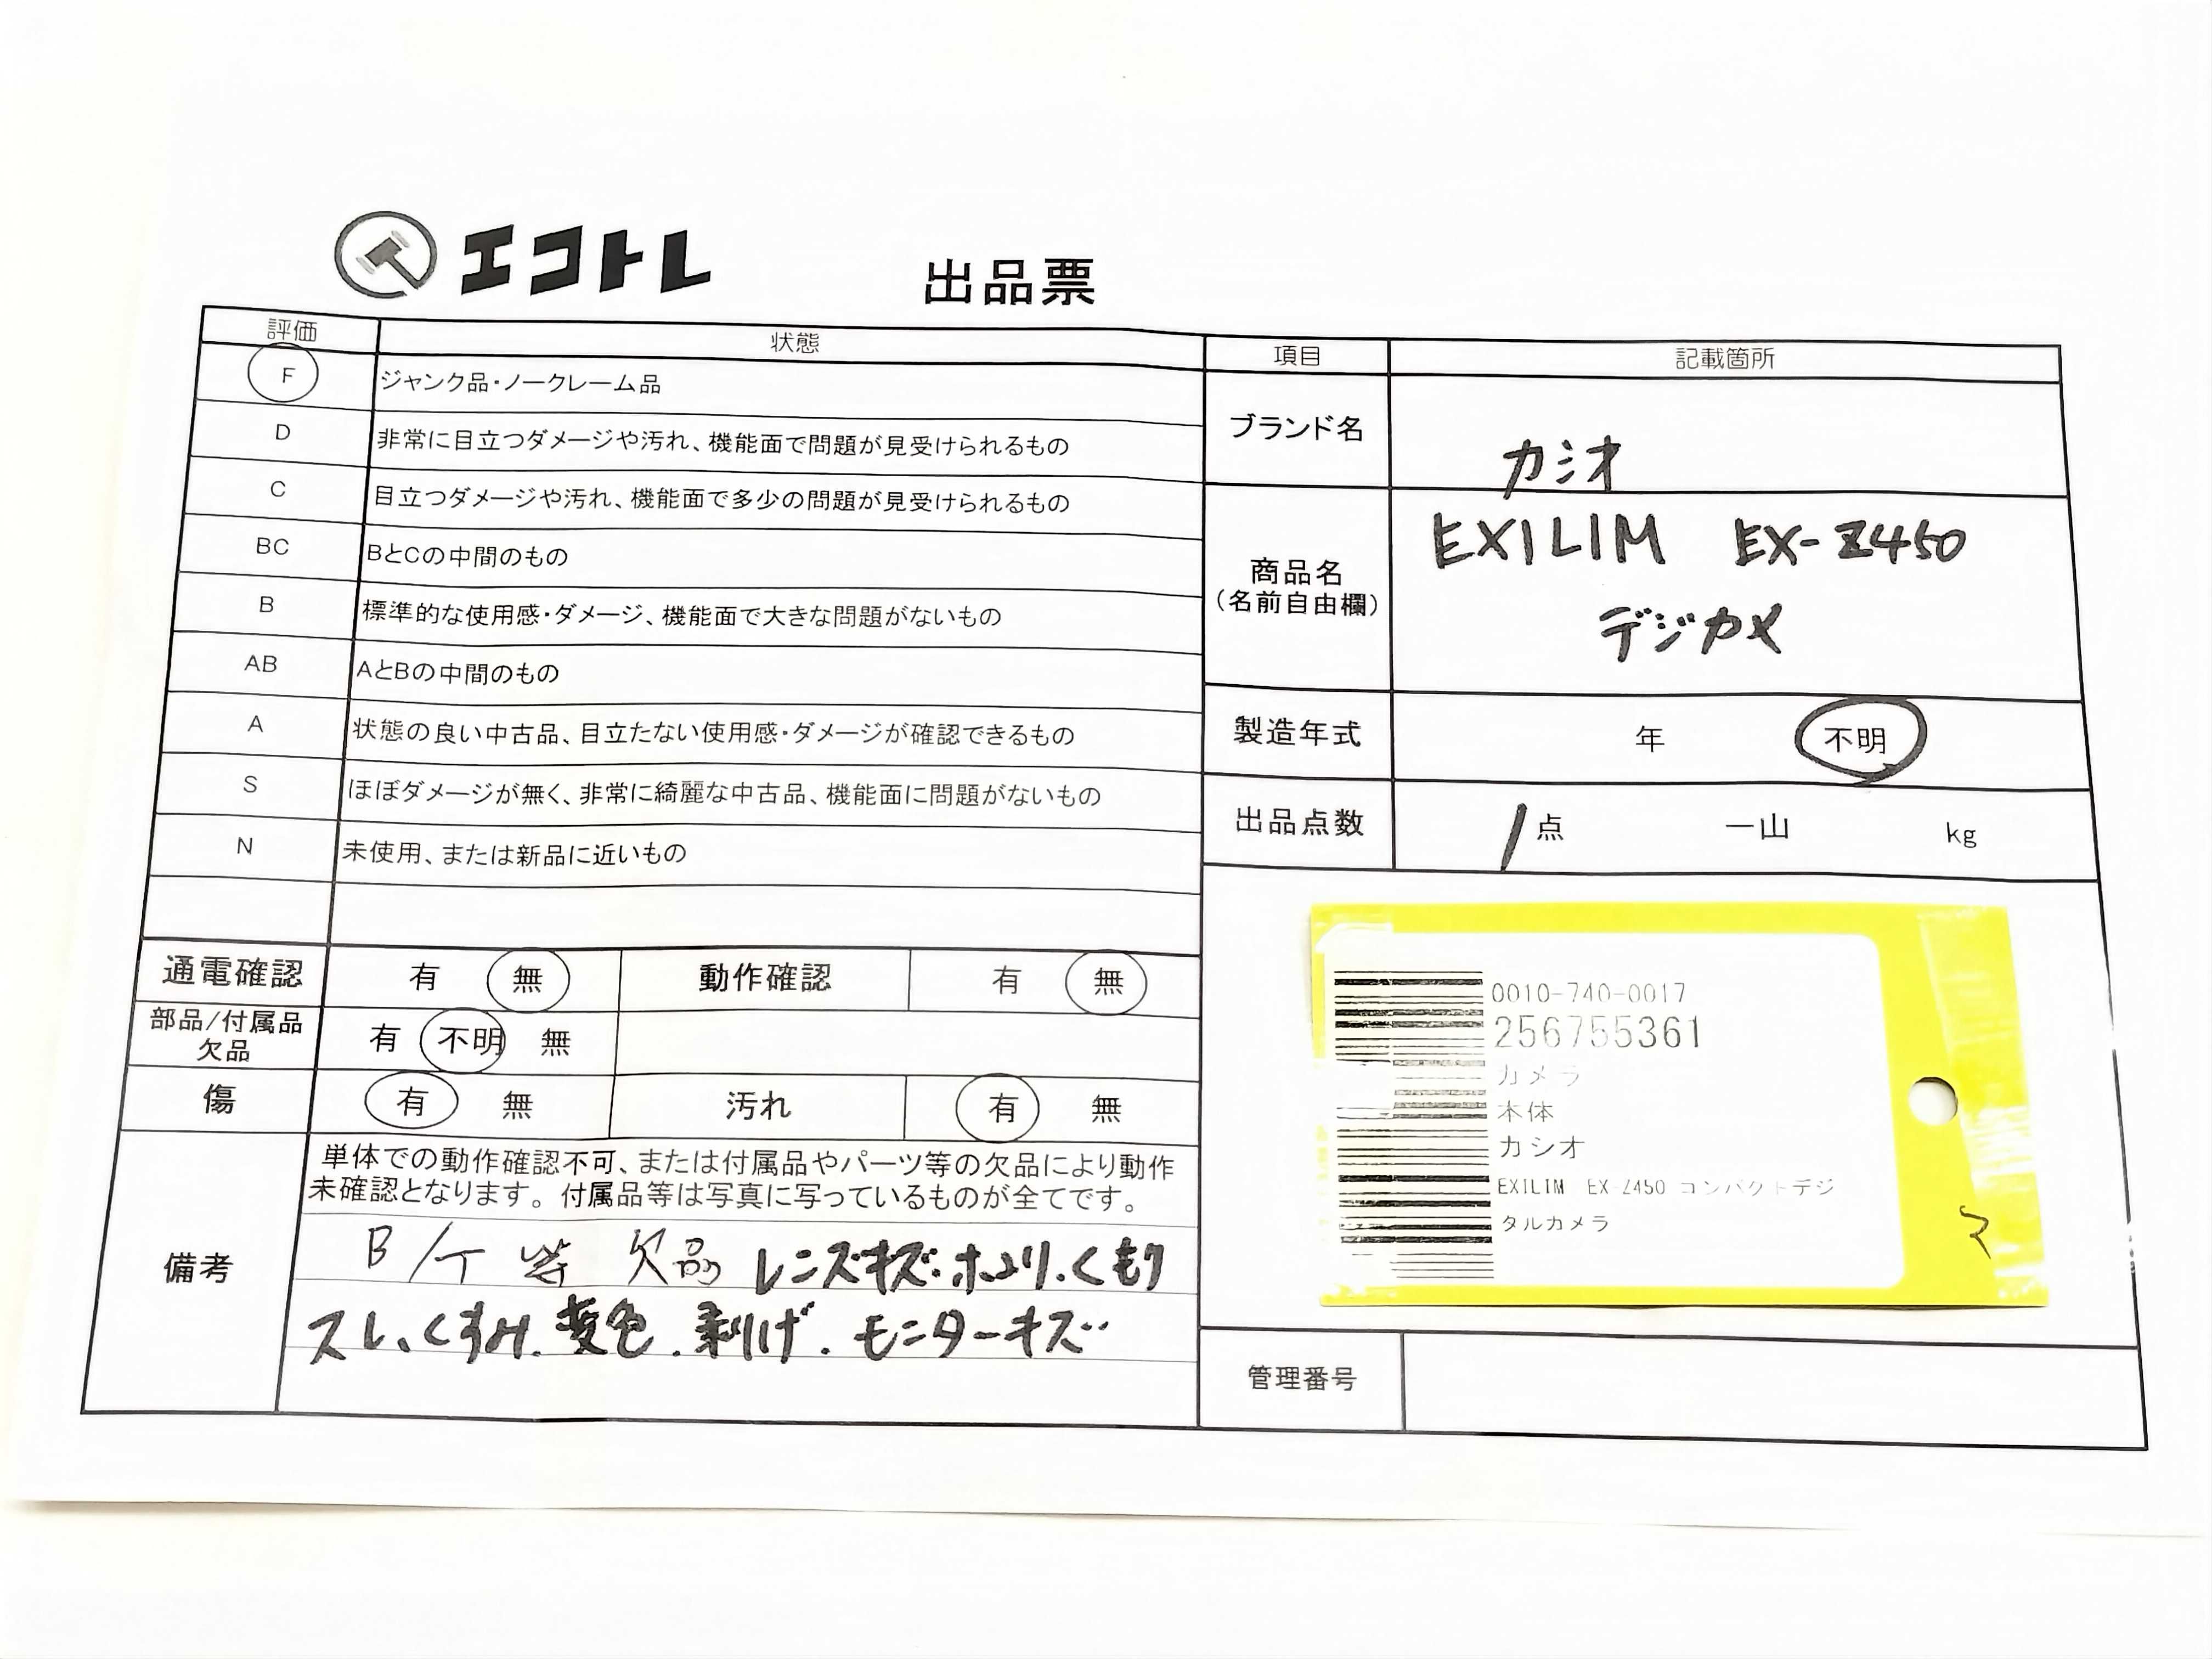 エコトレ
出品票
評価 状態
F ジャンク品・ノークレーム品
D 非常に目立つダメージや汚れ、機能面で問題が見受けられるもの
C 目立つダメージや汚れ、機能面で多少の問題が見受けられるもの
BC BとCの中間のもの
B 標準的な使用感・ダメージ、機能面で大きな問題がないもの
AB AとBの中間のもの
A 状態の良い中古品、目立たない使用感・ダメージが確認できるもの
S ほぼダメージが無く、非常に綺麗な中古品、機能面に問題がないもの
N 未使用、または新品に近いもの
通電確認 有 無 動作確認 有 無
部品/付属品 欠品 有 不明 無
傷 有 無 汚れ 有 無
備考
単体での動作確認不可、または付属品やパーツ等の欠品により動作
未確認となります。付属品等は写真に写っているものが全てです。
B/T 等 欠品 レンズキズ・ホコリ・くもり
スレ、くすみ.変色.剥げ.モニターキズ
項目 記載箇所
ブランド名 カシオ
商品名
(名前自由欄)
EXILIM EX-Z450
デジカメ
製造年式 年 不明
出品点数 1点 一山 kg
0010-740-0017
256755361
カメラ
本体
カシオ
EXILIM EX-Z450 コンパクトデジ
タルカメラ
管理番号